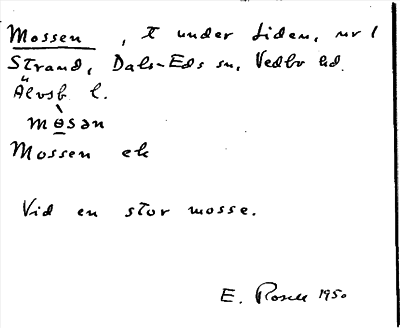 Mossen, t under Liden, nr 1
Strand, Dals-Eds sn, Vedbo hd.
Älvsb. l.
mòsən
Mossen ek
Vid en stor mosse.
E. Rosell 1950